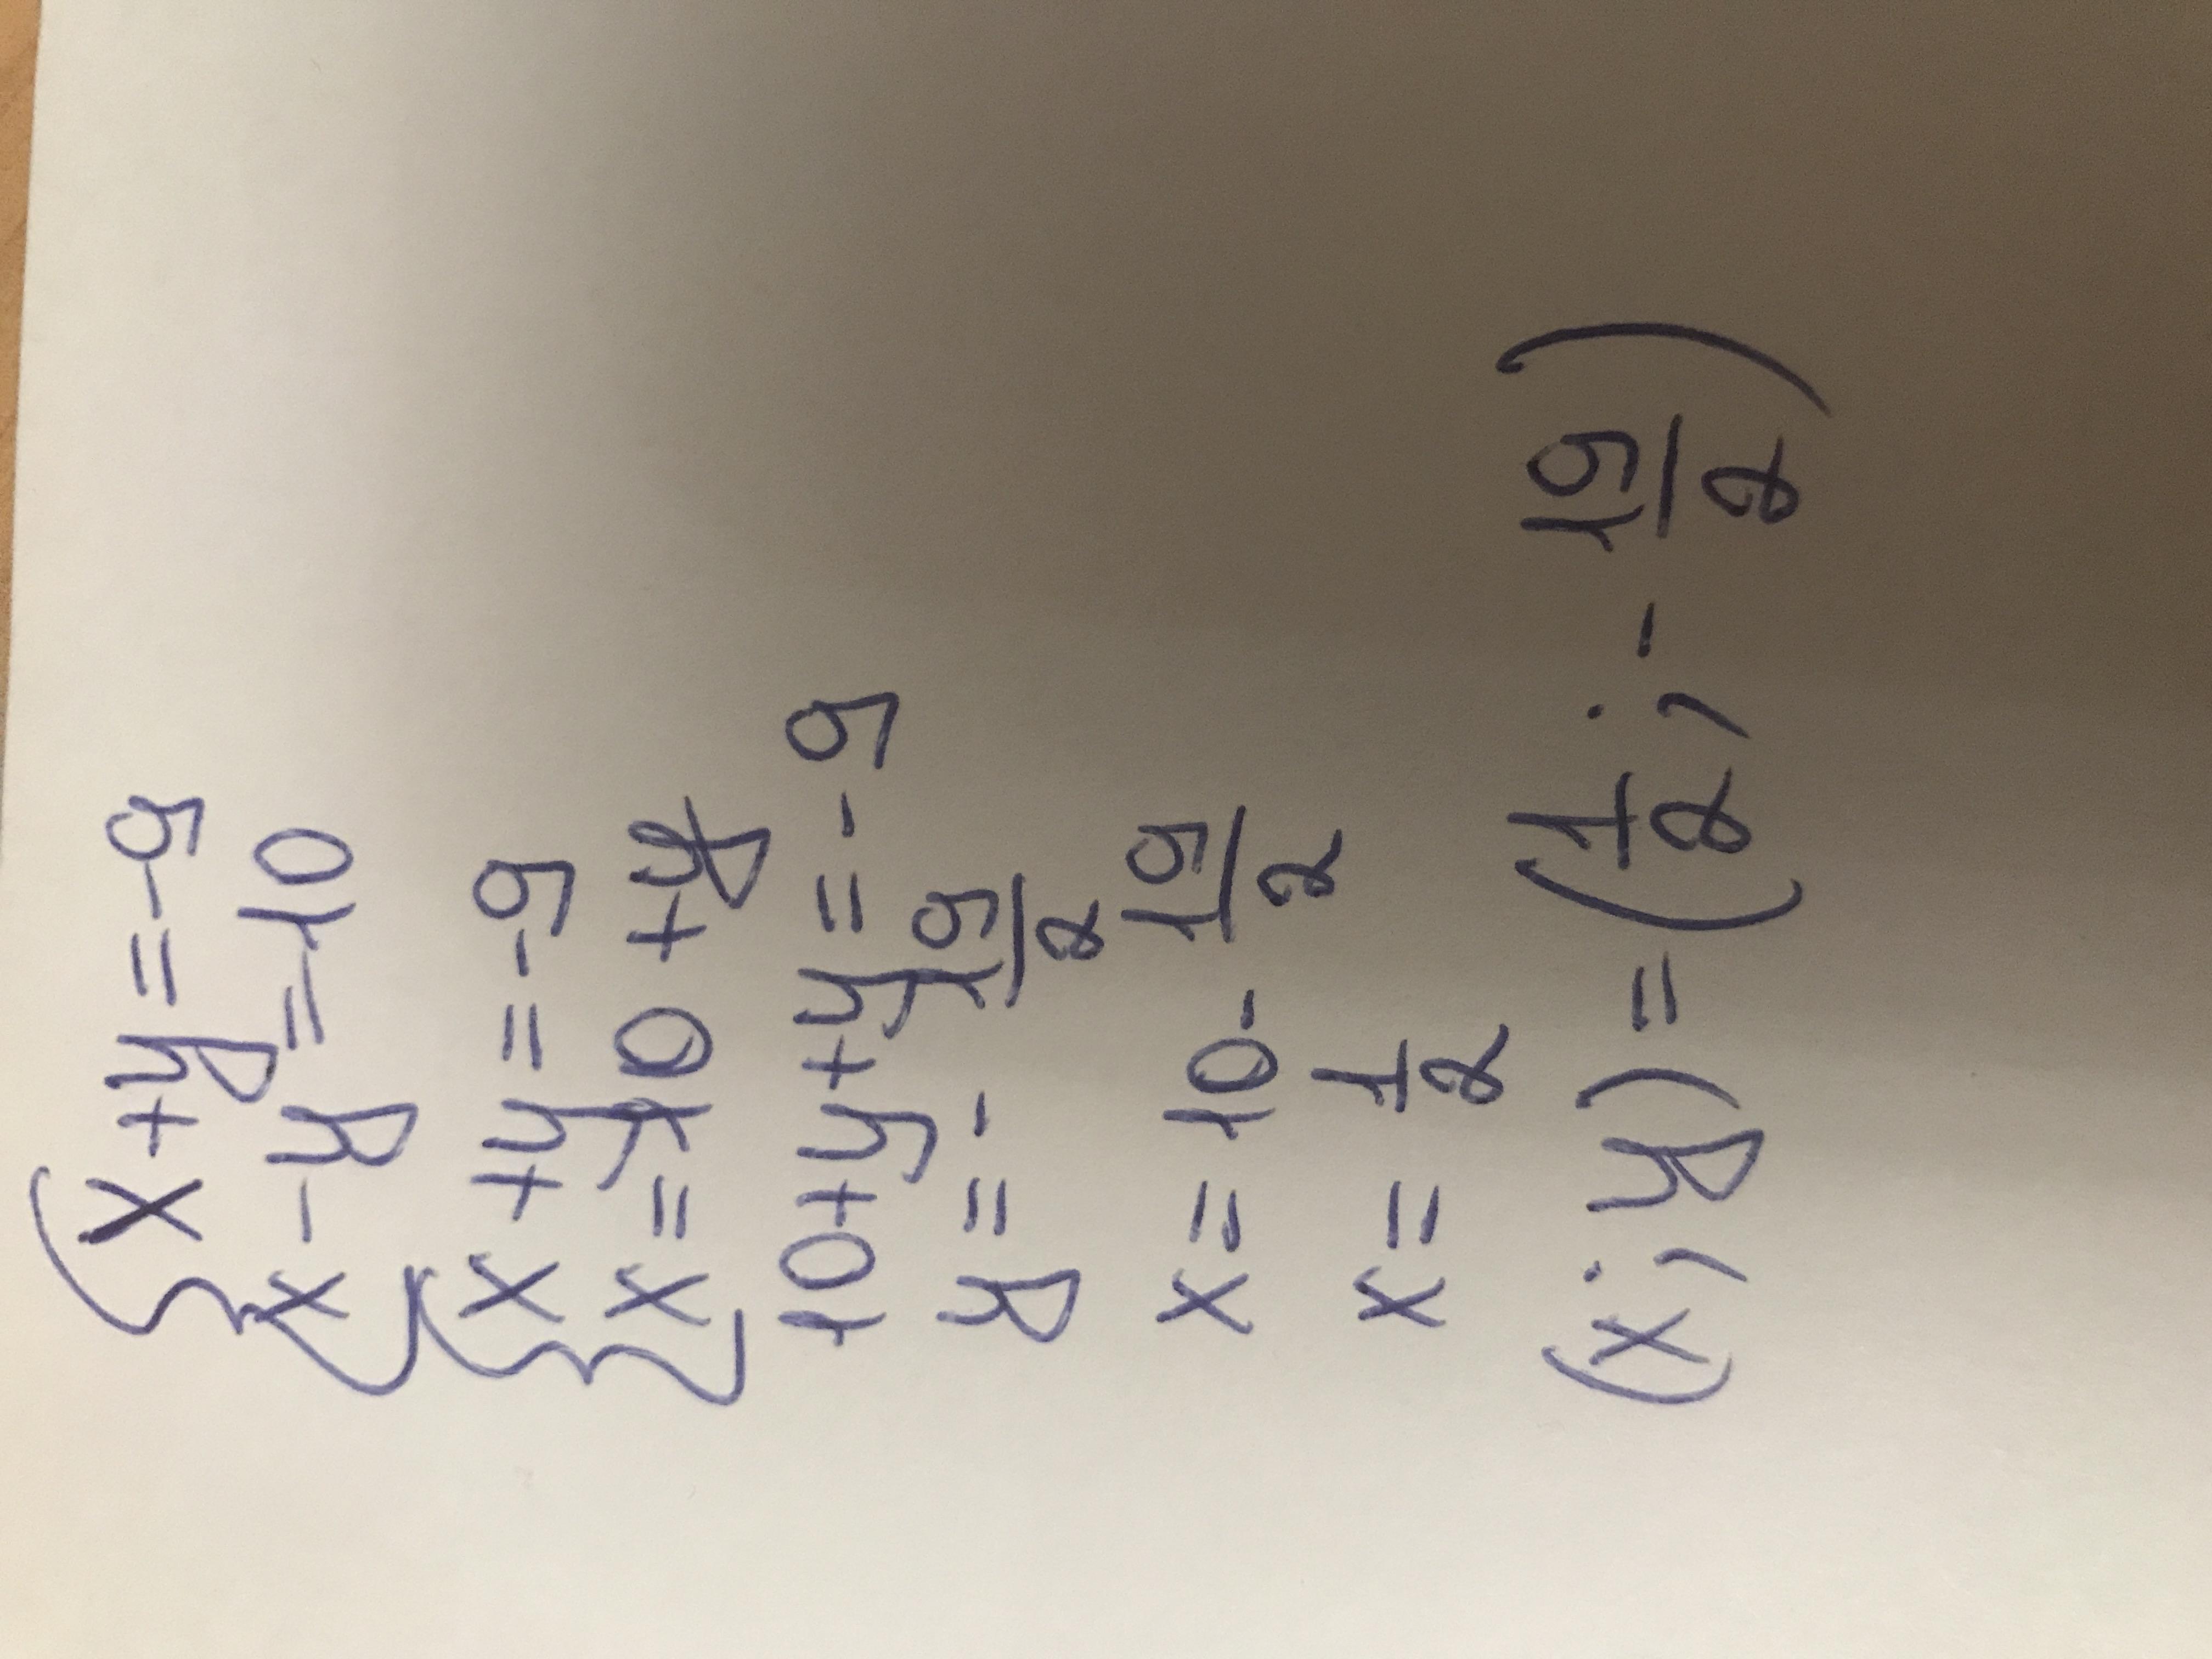 { x + y = -9
x - y = 10
{ x + y = -9
x = 10 + y
10 + y + y = -9
y = - 19/2
x = 10 - 19/2
x = 1/2
(x; y) = (1/2; - 19/2)